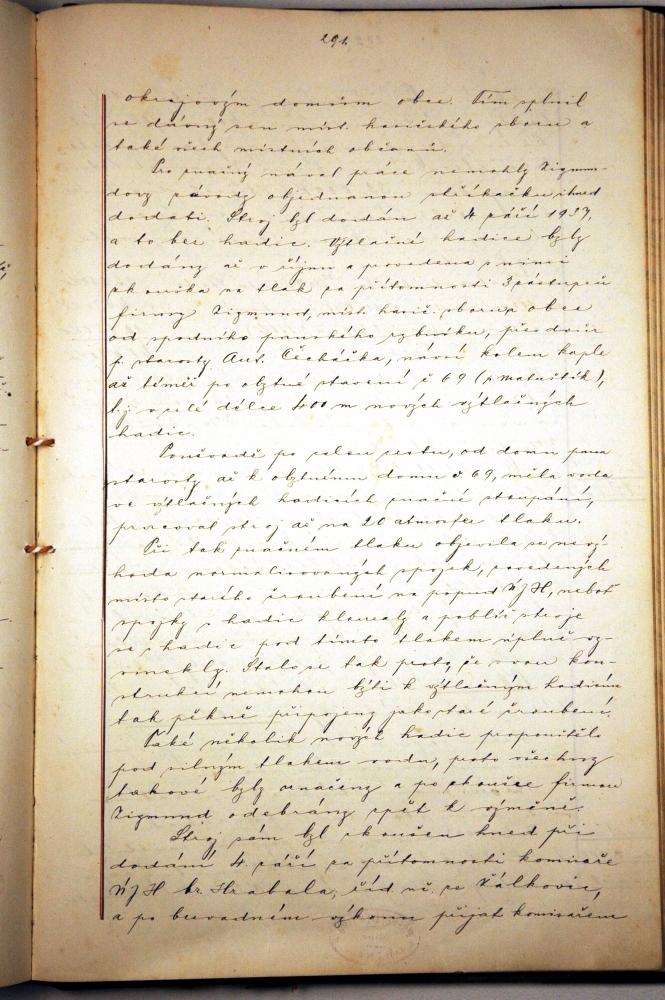 291.
okrajovým domům obce. Tím splnil
se dávný sen míst. hasičského sboru a
také všech místních občanů.
Pro značný nával práce nemohly Zigmun-
dovy závody objednanou stříkačku ihned
dodati. Stroj byl dodán až 4 září 1937,
a to bez hadic. Výtlačné hadice byly
dodány až v říjnu a provedena s nimi
zkouška na tlak za přítomnosti 3 zástupců
firmy Zigmund, míst. hasič. sboru z obce
od spodního panského rybníka, přes dvůr
p. starosty Ant. Čecháčka, návsí kolem kaple
až téměř po obytné stavení č 69 (p. Matuštík),
t.j. v celé délce 400 m nových výtlačných
hadic.
Poněvadž po celou cestu, od domu pana
starosty až k obytnému domu č 69, měla voda
ve výtlačných hadicích značné stoupání,
pracoval stroj až na 20 atmosfér tlaku.
Při tak značném tlaku objevila se nevý-
hoda normalisovaných spojek, zavedených
místo starého šroubení na popud ÚJH, neboť
spojky s hadic klouzaly a poblíž stroje
se s hadic pod tímto tlakem úplně vy-
smekly. Stalo se tak proto, že svou kon-
strukcí nemohou býti k výtlačným hadicím
tak pěkně připojeny jako staré šroubení.
Také několik nových hadic propouštělo
pod silným tlakem vodu, proto všechny
takové byly označeny a po zkoušce firmou
Zigmund odebrány zpět k výměně.
Stroj sám byl zkoušen hned při
dodání 4. září za přítomnosti komisaře
ÚJH br. Hrabala, říd. uč. ze Žálkovic,
a po bezvadném výkonu přijat komisařem